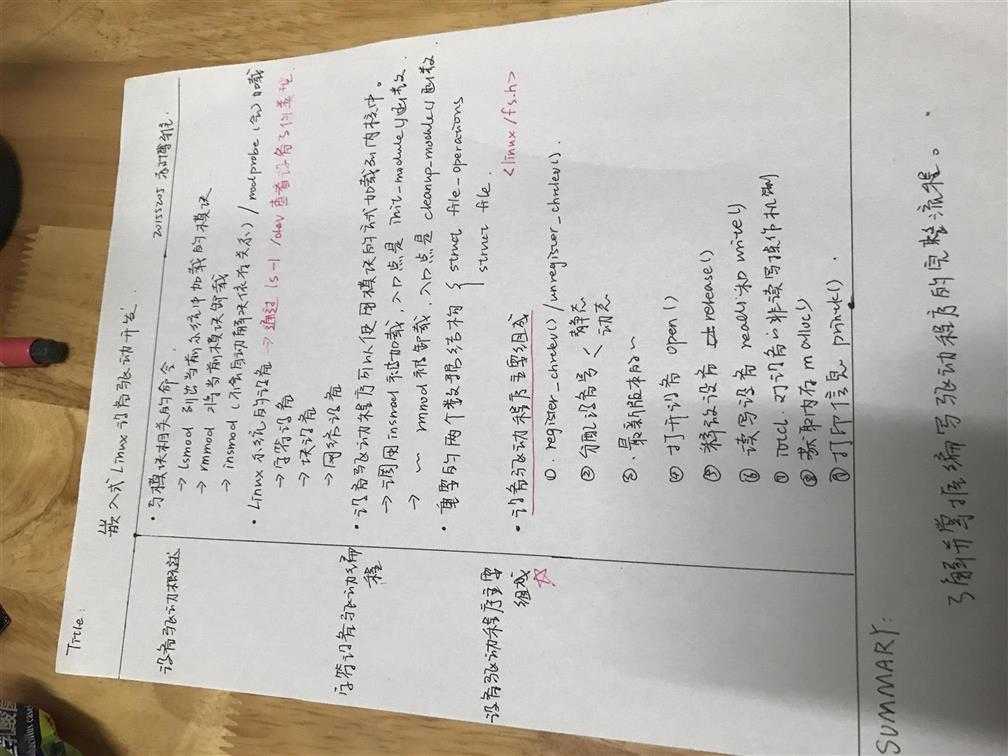 Title:
嵌入式Linux设备驱动开发
20155205 郝博雅
设备驱动概述
·与模块相关的命令.
→ lsmod 列出当前系统中加载的模块
→ rmmod 将当前模块卸载
→ insmod(不会自动解决依存关系) / modprobe(会)加载
·Linux系统的设备 → 通过 ls -l /dev 查看设备了何类型.
→ 字符设备
→ 块设备
→ 网络设备
字符设备驱动编程
·设备驱动程序可以使用模块的方式加载到内核中。
→ 调用insmod被加载,入口点是 init-module()函数.
→ 〃 rmmod 被卸载,入口点是 cleanup-module()函数
·重要的两个数据结构 { struct file-operations
struct file.
<linux/fs.h>
设备驱动程序主要组成 ☆
·设备驱动程序主要组成
①. register_chrdev() / unregister_chrdev().
② 分配设备号 < 静态
动态
③. 最新版本的~
④ 打开设备 open()
⑤ 释放设备 release()
⑥ 读写设备 read()和write()
⑦ ioctl. 对设备的非读写操作机制
⑧ 获取内存 malloc()
⑨ 打印信息 printk().
SUMMARY:
了解并掌握编写驱动程序的完整流程。